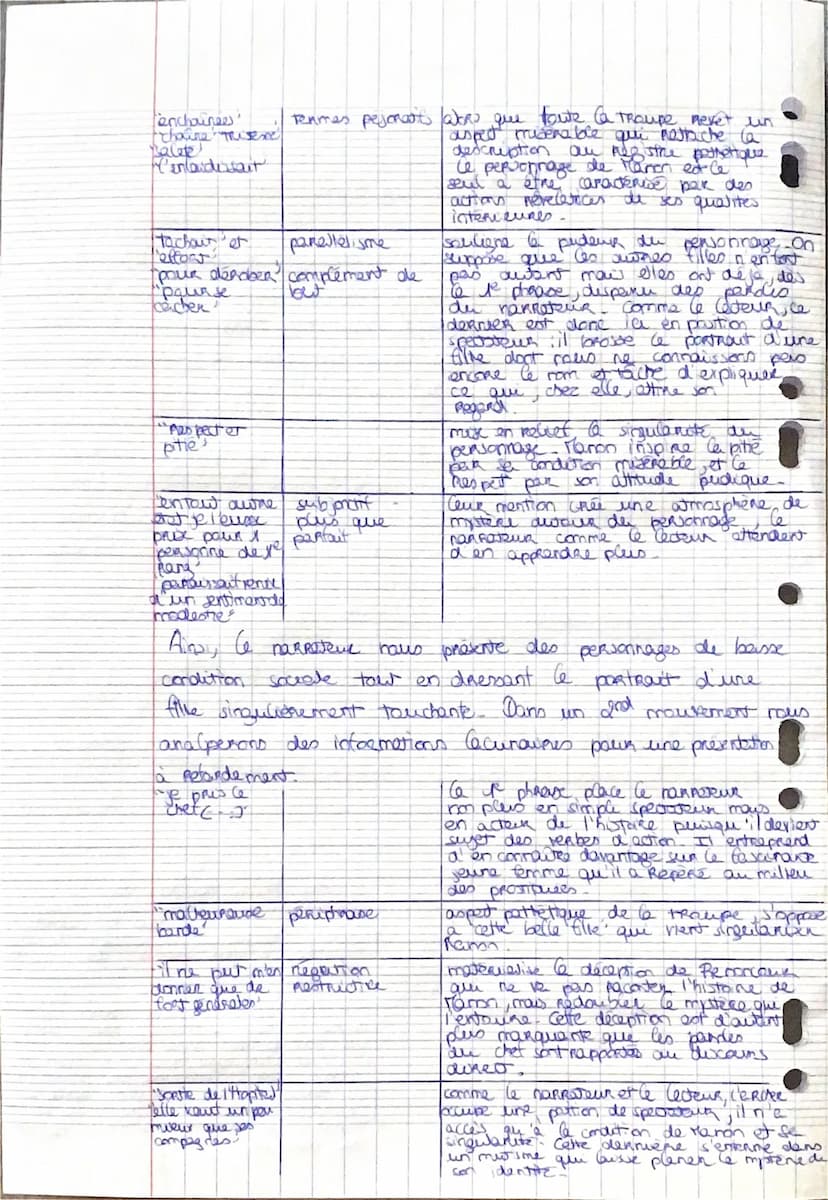 "enchaînées" termes péjoratifs alors que toute la troupe revêt un
"chaîne" aspect misérable qui rattache la
"saleté" description au registre pathétique
"l'enlaidissait" le personnage de Manon est le
seul à être caractérisé par des
actions révélatrices de ses qualités
intérieures.
"tachait" et parallélisme souligne la pudeur du personnage. On
"effort" suppose que les autres filles n'en font
"pour dérober" complément de pas autant mais elles ont déjà, dès
"pour se but la 1e phrase, disparu des paroles
cacher" du narrateur. Comme le lecteur, ce
dernier est donc ici en position de
spectateur : il brosse le portrait d'une
fille dont nous ne connaissons pas
encore le nom et tâche d'expliquer
ce qui, chez elle, attire son
regard.
"Respect et mise en relief la singularité du
pitié" personnage. Manon inspire la pitié
par sa condition misérable, et le
respect par son attitude pudique.
"en tout autre subjonctif leur mention crée une atmosphère de
état je l'eusse plus que mystère autour du personnage, le
prise pour 1 parfait narrateur comme le lecteur attendent
personne de 1e d'en apprendre plus.
rang"
"paraissait
d'un sentiment de
modestie"
Ainsi, le narrateur nous présente des personnages de basse
condition sociale tout en dressant le portrait d'une
fille singulièrement touchante. Dans un 2nd mouvement nous
analyserons des informations lacunaires pour une présentation
à retardement.
"je pris le la 1e phrase place le narrateur
chef (...)" non plus en simple spectateur mais
en acteur de l'histoire puisqu'il devient
sujet des verbes d'action. Il entreprend
d'en connaître davantage sur la fascinante
jeune femme qu'il a repéré au milieu
des prostituées.
"malheureuse périphrase aspect pathétique de la troupe s'oppose
bande" à "cette belle fille" qui vient singulariser
Manon.
"il ne put m'en négation matérialise la déception de Renoncour
donner que de restrictive qui ne va pas raconter l'histoire de
fort générales" Manon, mais redoubler le mystère qui
l'entoure. Cette déception est d'autant
plus marquante que les paroles
du chef sont rapportés au discours
direct.
"sortie de l'Hôpital" comme le narrateur et le lecteur, l'archer
"elle vaut un peu occupe une position de spectateur, il n'a
mieux que ses accès qu'à la condition de Manon et sa
compagnes." singularité. Cette dernière s'enferme dans
un mutisme qui laisse planer le mystère de
son identité.